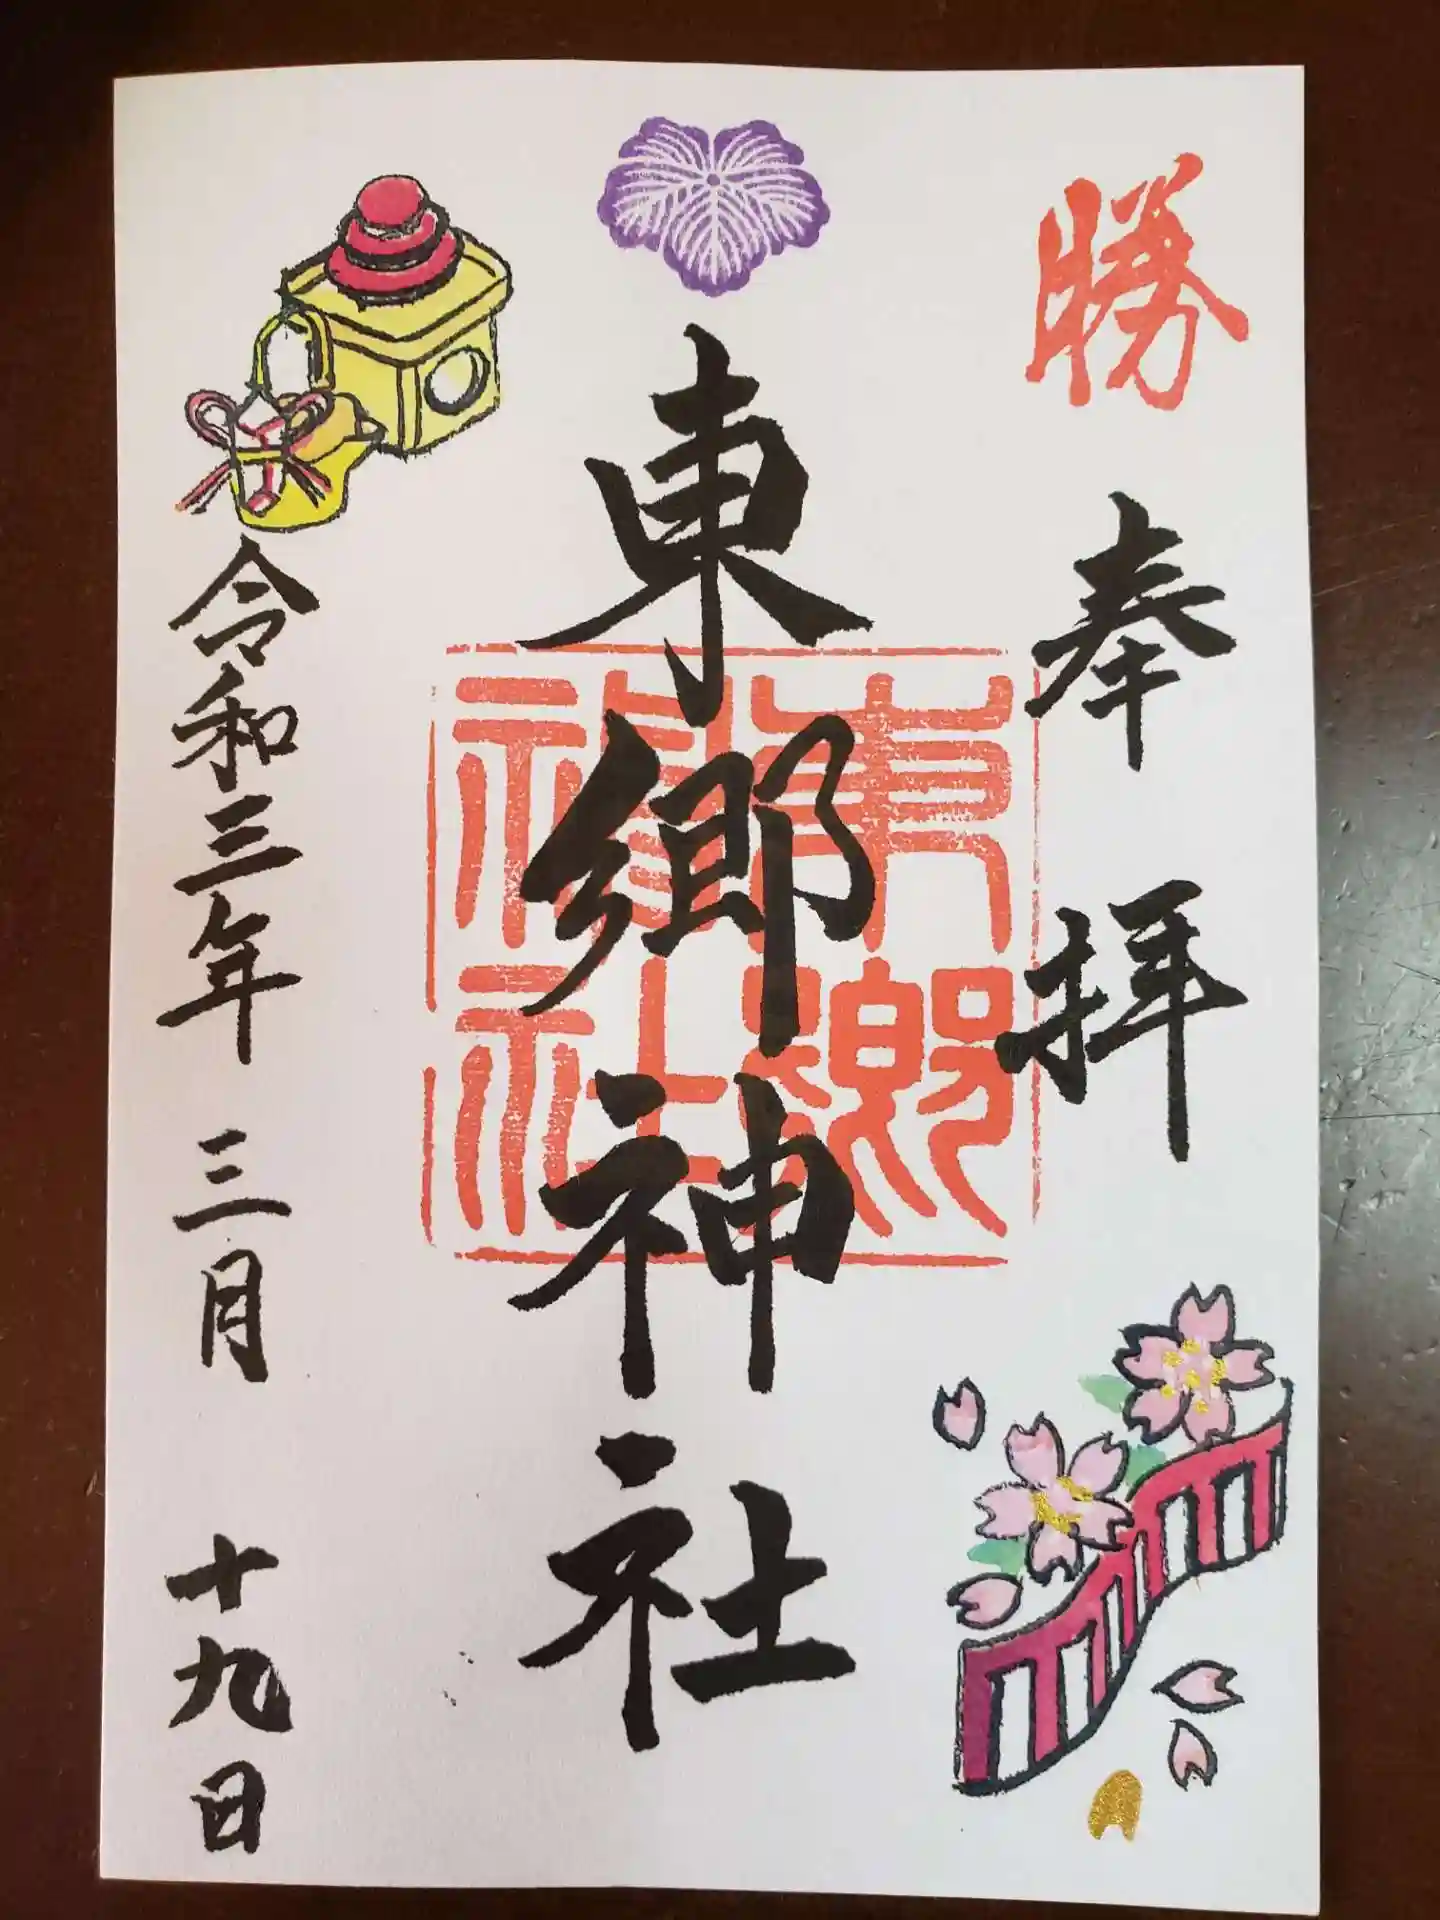 勝
奉拝
東郷神社
東郷神社
令和三年 三月 十九日